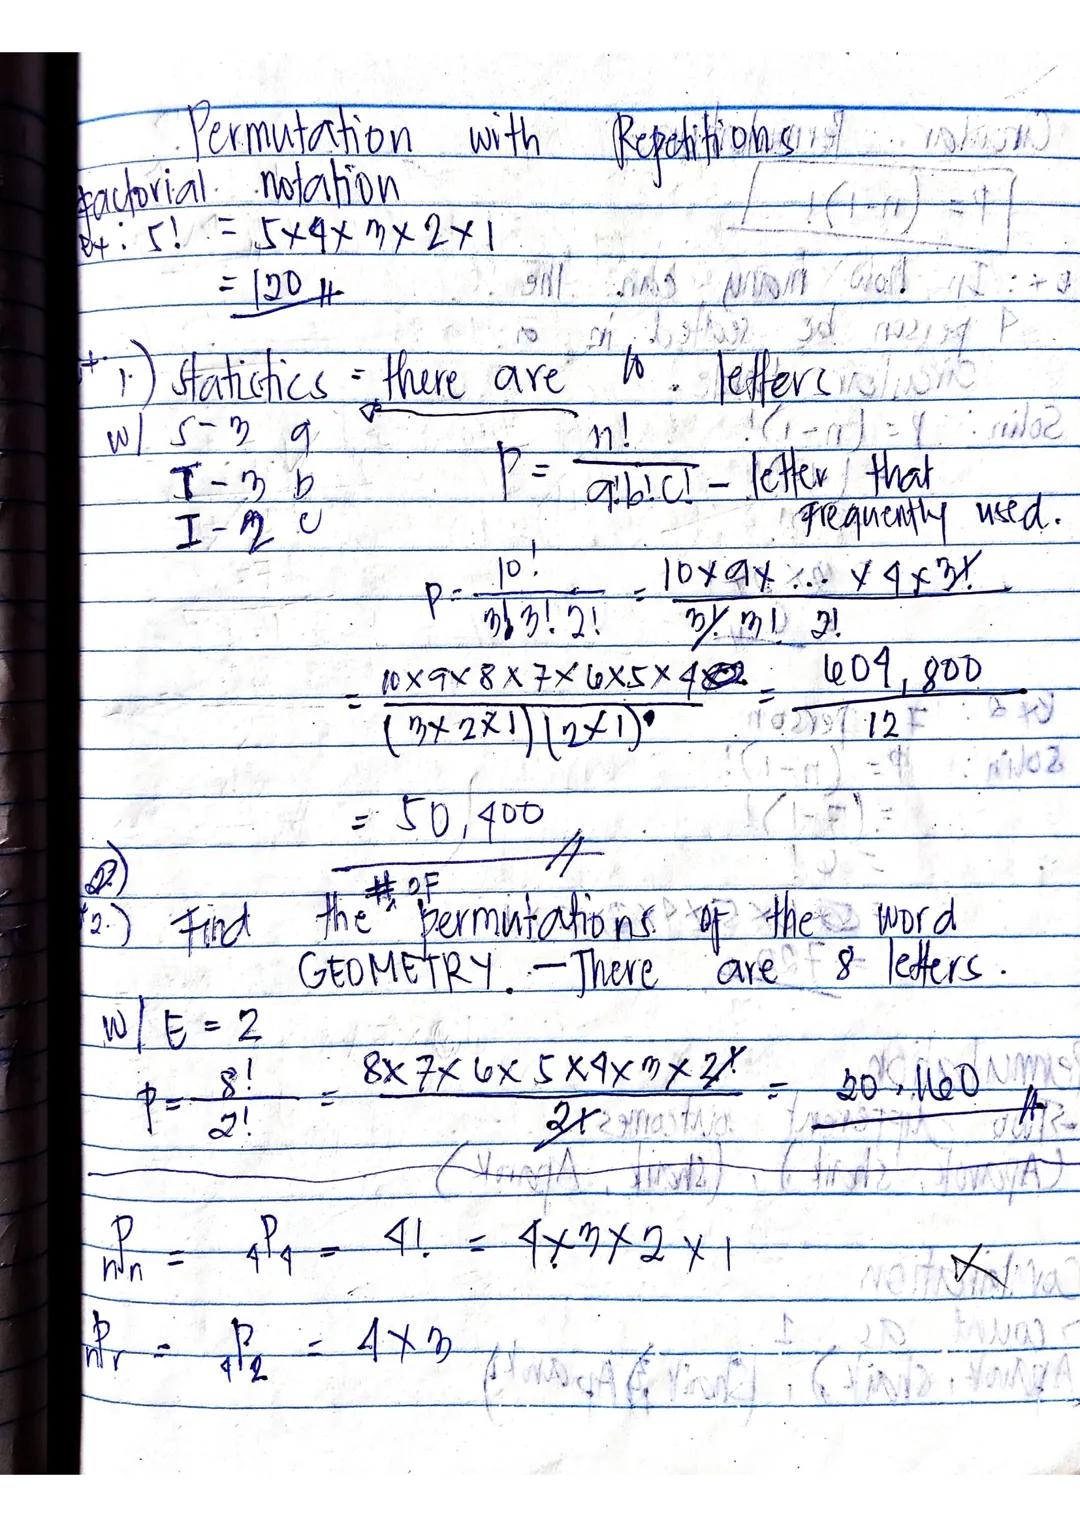 Permutation with Repetitions
factorial notation
ex: 5! = 5x4x3x2x1
= 120 //
ex. 1.) Statistics = there are 10 letters
w/ S - 3 a
T - 3 b
I - 2 c
P = n! / a!b!c! - letter that frequently used.
P = 10! / 3!3!2! = 10x9x...x4x3! / 3! 3! 2!
= 10x9x8x7x6x5x4 / (3x2x1)(2x1) = 604,800 / 12
= 50,400 //
2.) Find the # of permutations of the word
GEOMETRY. - There are 8 letters.
w/ E = 2
P = 8! / 2! = 8x7x6x5x4x3x2! / 2! = 20,160 //
nPn = 4P4 = 4! = 4x3x2x1
nPr = 4P2 = 4x3